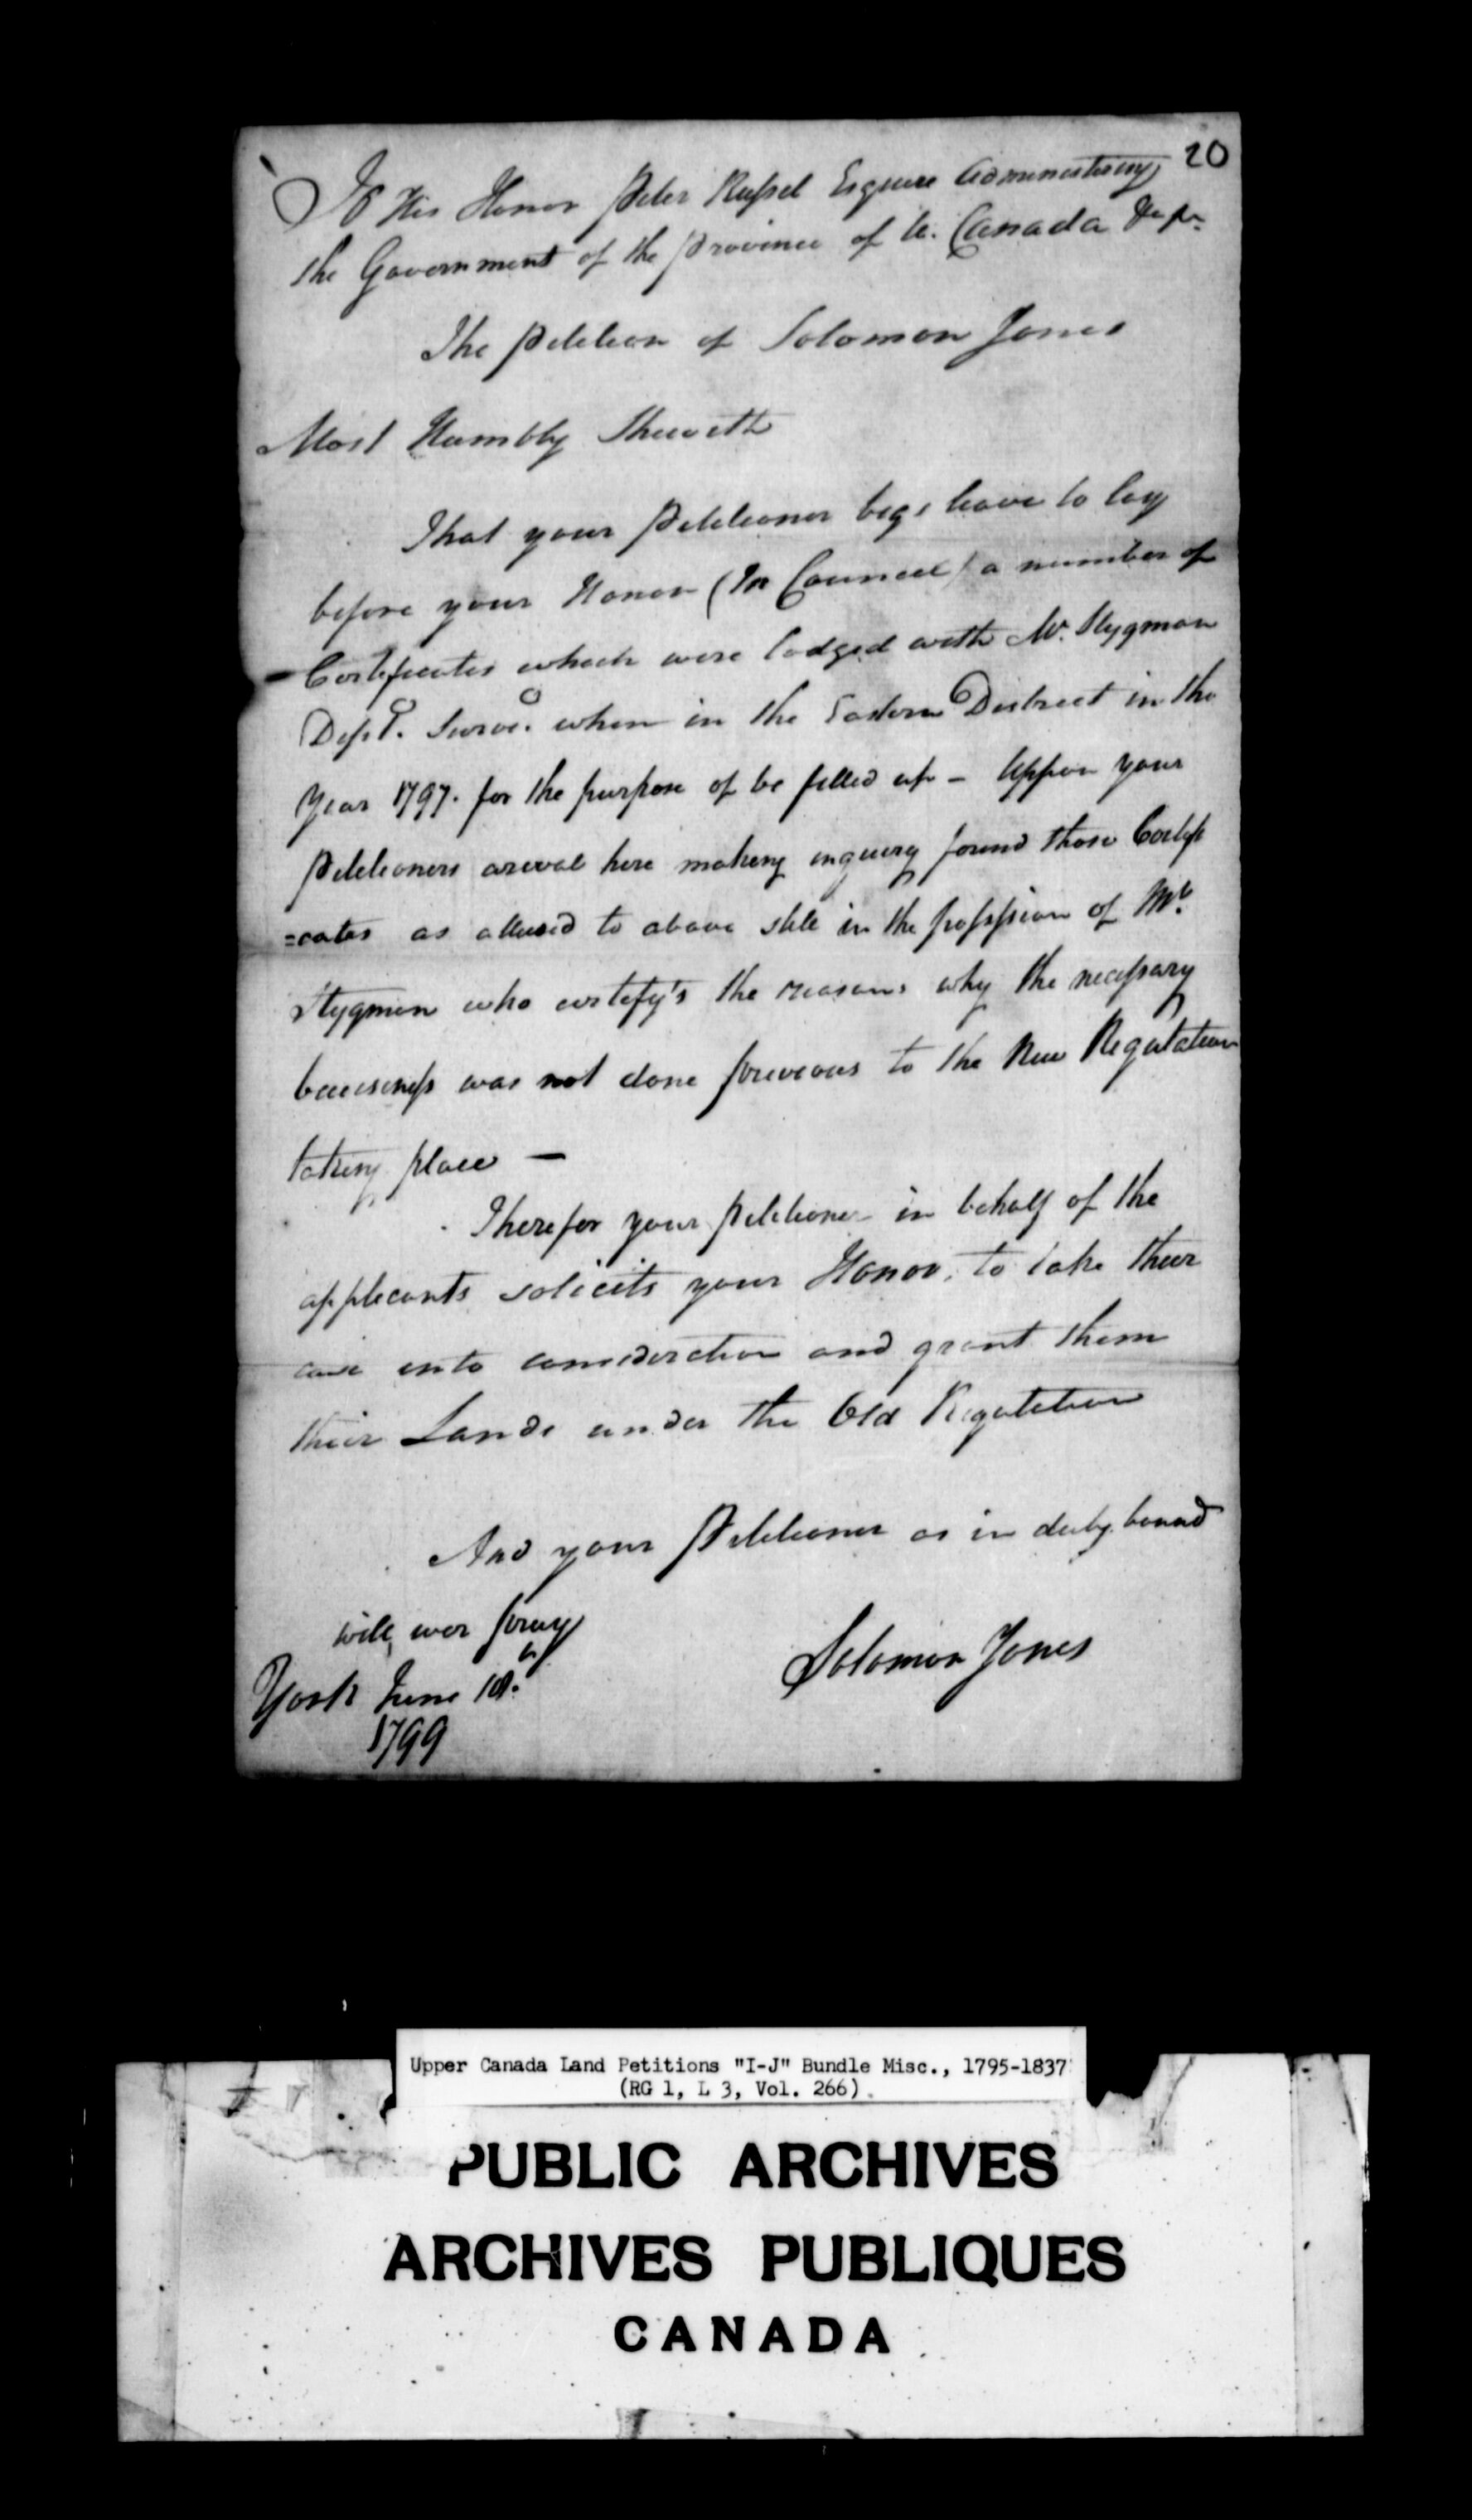 20
To His Honor Peter Russel Esquire Administering
the Government of the Province of U. Canada &c &c
The Petition of Solomon Jones
Most Humbly Sheweth
That your Petitioner begs leave to lay
before your Honor (In Council) a number of
Certificates which were lodged with Mr. Stegman
Dept. Surv. when in the Eastern District in the
Year 1797. for the purpose of be filled up – Uppon your
Petitioners arival here making inquiry found those Certifi
=cates as allused to above still in the possession of Mr.
Stegman who certify's the reasons why the necessary
buisiness was not done previous to the New Regulation
taking place —
Therefor your petitioner in behalf of the
applicants solicits your Honor, to take their
case into consideration and grant them
their Lands under the Old Regulation
And your Petitioner as in duty bound
will ever pray
Solomon Jones
York June 10th
1799
Upper Canada Land Petitions "I-J" Bundle Misc., 1795-1837
(RG 1, L 3, Vol. 266)
PUBLIC ARCHIVES
ARCHIVES PUBLIQUES
CANADA